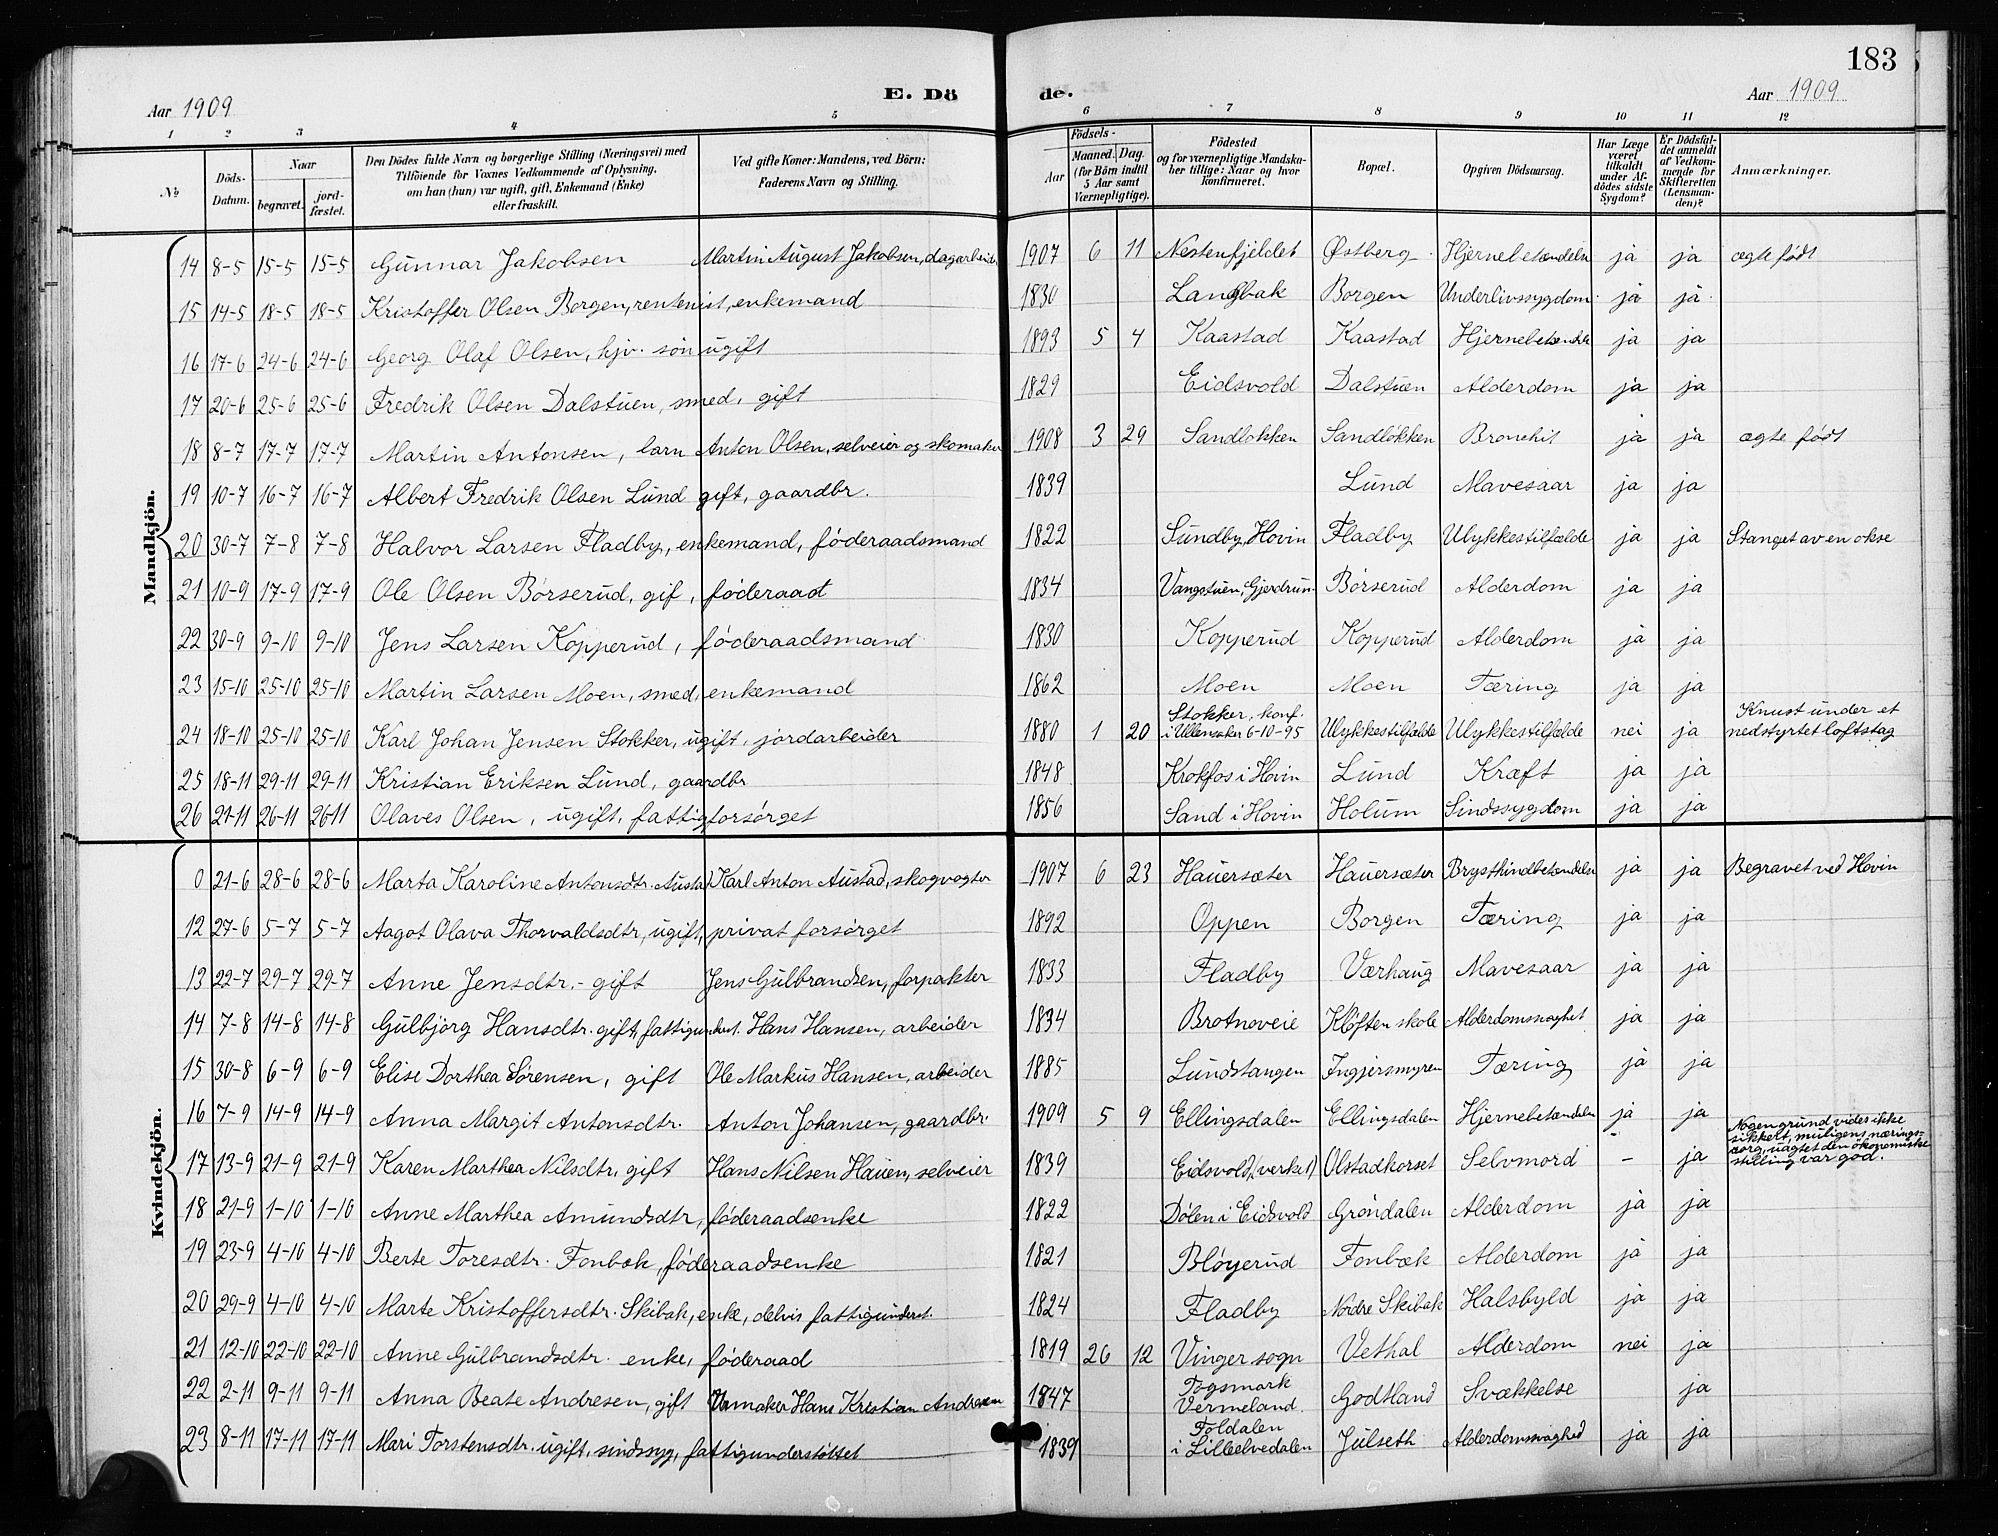 183
Aar 1909 E. Dö de. Aar 1909
1 2 3 4 5 6 7 8 9 10 11 12
№ Döds-Datum. Naar begravet. jordfæstet. Den Dödes fulde Navn og borgerlige Stilling (Næringsvei) med Tilföiende for Voxnes Vedkommende af Oplysning, om han (hun) var ugift, gift, Enkemand (Enke) eller fraskilt. Ved gifte Koner: Mandens, ved Börn: Faderens Navn og Stilling. Födsels- Aar Maaned. Dag. (for Börn indtil 5 Aar samt Værnepligtige). Födested og for værnepligtige Mandskaber tillige: Naar og hvor konfirmeret. Bopæl. Opgiven Dödsaarsag. Har Læge været tilkaldt under Afdödes sidste Sygdom? Er Dödsfaldet anmeldt af Vedkommende for Skifteretten (Lensmanden)? Anmærkninger.
Mandkjön.
14 8-5 15-5 15-5 Gunnar Jakobsen Martin August Jakobsen, dagarbeid. 1907 6 11 Nestenfjeldet Østberg Hjernebetændelse ja ja ægte født
15 14-5 18-5 18-5 Kristoffer Olsen Borgen, rentenist, enkemand 1830 Langbak Borgen Underlivssygdom ja ja
16 17-6 24-6 24-6 Georg Olaf Olsen, hjv. søn ugift 1893 5 4 Kaastad Kaastad Hjernebetændelse ja ja
17 20-6 25-6 25-6 Fredrik Olsen Dalstuen, smed, gift 1829 Eidsvold Dalstuen Alderdom ja ja
18 8-7 17-7 17-7 Martin Antonsen, barn Anton Olsen, selveier og skomaker 1908 3 29 Sandløkken Sandløkken Bronchit ja ja ægte født
19 10-7 16-7 16-7 Albert Fredrik Olsen Lund gift, gaardbr. 1839 Lund Mavesaar ja ja
20 30-7 7-8 7-8 Halvor Larsen Fladby, enkemand, føderaadsmand 1822 Sundby, Hovin Fladby Ulykkestilfælde ja ja Stanget av en okse
21 10-9 17-9 17-9 Ole Olsen Børserud, gif, føderaad 1834 Vangstuen, Gjerdrum Børserud Alderdom ja ja
22 30-9 9-10 9-10 Jens Larsen Kopperud, føderaadsmand 1830 Kopperud Kopperud Alderdom ja ja
23 15-10 25-10 25-10 Martin Larsen Moen, smed, enkemand 1862 Moen Moen Tæring ja ja
24 18-10 25-10 25-10 Karl Johan Jensen Stokker, ugift, jordarbeider 1880 1 20 Stokker, konf. i Ullensaker 6-10-95 Ulykkestilfælde Ulykkestilfælde nei ja Knust under et nedstyrtet loftstag
25 18-11 29-11 29-11 Kristian Eriksen Lund, gaardbr 1848 Krokfos i Hovin Lund Kræft ja ja
26 21-11 26-11 26-11 Olaves Olsen, ugift, fattigforsørget 1856 Sand i Hovin Holum Sindssygdom ja ja
Kvindekjön.
0 21-6 28-6 28-6 Marta Karoline Antonsdtr. Austad Karl Anton Austad, skogvogter 1907 6 23 Hauersæter Hauersæter Brysthindbetændelse ja ja Begravet ved Hovin
12 27-6 5-7 5-7 Aagot Olava Thorvaldsdtr, ugift, privat forsørget 1892 Oppen Borgen Tæring ja ja
13 22-7 29-7 29-7 Anne Jensdtr. - gift Jens Gulbrandsen, forpakter 1833 Fladby Værhaug Mavesaar ja ja
14 7-8 14-8 14-8 Gulbjørg Hansdtr. gift, fattigunderst. Hans Hansen, arbeider 1834 Brotnoveie Kløften skole Alderdomssvaghet ja ja
15 30-8 6-9 6-9 Elise Dorthea Sørensen, gift Ole Markus Hansen, arbeider 1885 Lundstangen Ingjersmyren Tæring ja ja
16 7-9 14-9 14-9 Anna Margit Antonsdtr. Anton Johansen, gaardbr. 1909 5 9 Ellingsdalen Ellingsdalen Hjernebetændelse ja ja
17 13-9 21-9 21-9 Karen Marthea Nilsdtr, gift Hans Nilsen Hauen, selveier 1839 Eidsvold, (verket) Olstadkorset Selvmord - ja Nogen grund vides ikke sikkert, muligens næringssorg, uagtet den økonomiske stilling var god.
18 21-9 1-10 1-10 Anne Marthea Amundsdtr, føderaadsenke 1822 Dølen i Eidsvold Grøndalen Alderdom ja ja
19 23-9 4-10 4-10 Berte Toresdtr. Fonbæk, føderaadsenke 1821 Bløyerud Fonbæk Alderdom ja ja
20 29-9 4-10 4-10 Marte Kristoffersdtr. Skibak, enke, delvis fattigunderst. 1824 Fladby Nordre Skibak Halsbyld ja ja
21 12-10 22-10 22-10 Anne Gulbrandsdtr. enke, føderaad 1819 26 12 Vinger sogn Vethal Alderdom nei ja
22 2-11 9-11 9-11 Anna Beate Andresen, gift Urmaker Hans Kristian Andresen 1847 Togsmark Vermeland. Godtland Svækkelse ja
23 8-11 17-11 17-11 Mari Torstensdtr. ugift, sindssyg, fattigunderstöttet 1839 Foldalen i Lilleelvedalen Julseth Alderdomssvaghed ja ja